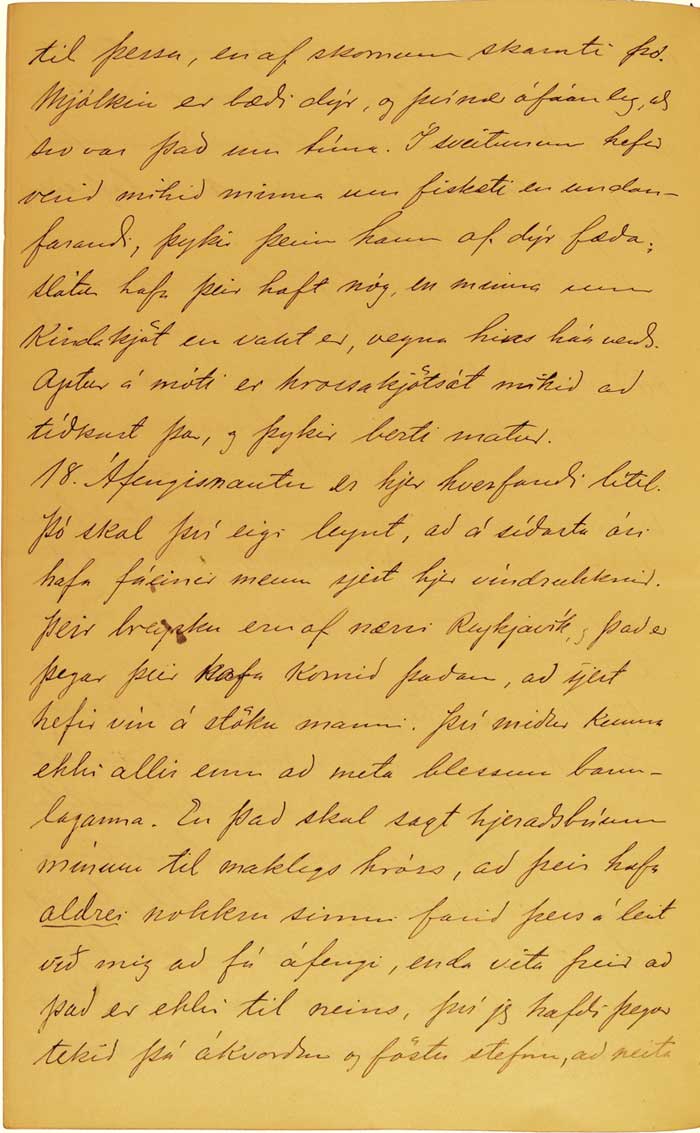 til þessa, en af skornum skamti þó.
Mjólkin er bæði dýr, og því nær ófáanleg, að
svo var það um tíma. Í sveitunum hefir
verið mikið minna um fiskæti en undan-
farandi, þykir þeim hann of dýr fæða;
slátur hafa þeir haft nóg, en minna um
Kindakjöt en vant er, vegna hins háa verðs.
Aptur á móti er hrossakjötsát mikið að
tíðkast þar, og þykir bezti matur.
18. Áfengisnautn er hjer hverfandi lítil.
Þó skal því eigi leynt, að á síðasta ári
hafa fáeinir menn sjest hjer víndrukknir.
Þeir breysku eru af nærri Reykjavík, og það er
þegar þeir hafa komið þaðan, að sjest
hefir vín á stöku manni. Því miður kunna
ekki allir enn að meta blessun bann-
laganna. En það skal sagt hjeraðsbúum
mínum til maklegs hróss, að þeir hafa
aldrei nokkru sinni farið þess á leit
við mig að fá áfengi, enda vita þeir að
það er ekki til neins, því jeg hafði þegar
tekið þá ákvörðun og föstu stefnu, að neita